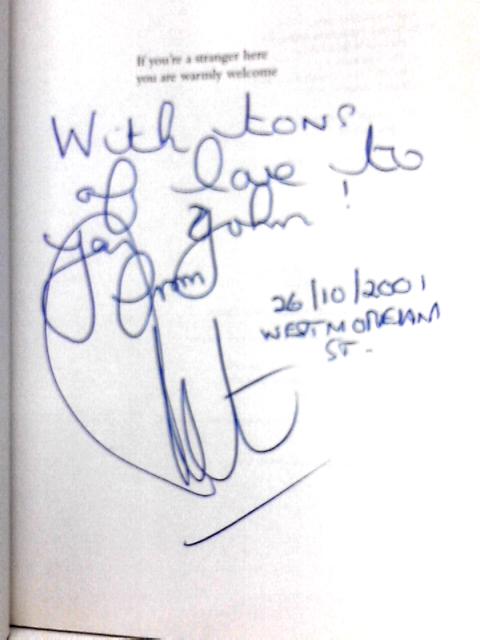 If you're a stranger here
you are warmly welcome
With tons
of love to
John !
from
26/10/2001
WESTMORELAND
ST.